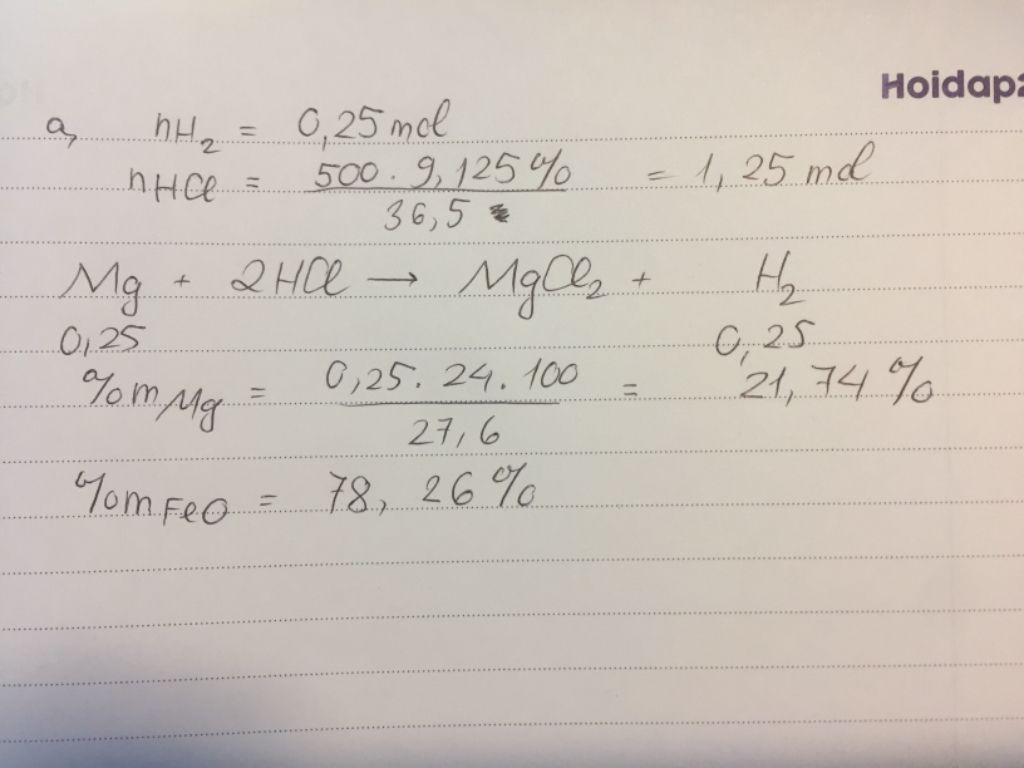 Hoidap2
a, nH₂ = 0,25 mol
nHCl = 500 . 9,125% / 36,5 = 1,25 mol
Mg + 2HCl → MgCl₂ + H₂
0,25 0,25
%mMg = 0,25 . 24 . 100 / 27,6 = 21,74%
%mFeO = 78,26%